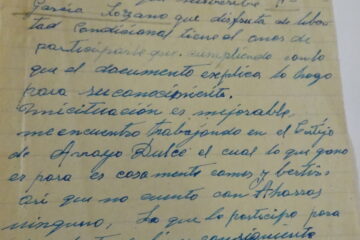 Garcia Lozano que disfruta de liber
tad Condicional tiene el onor de
participarle que cumpliendo con lo
que el documento explica lo hago
para su conosimiento.
mi cituación es mejorable,
me encuentro trabajando en el Cortijo
de Arroyo Dulce el cual lo que gano
es para escasamente comer y bertir
asi que no cuento con Ahorros
ninguno, Lo que le participo para